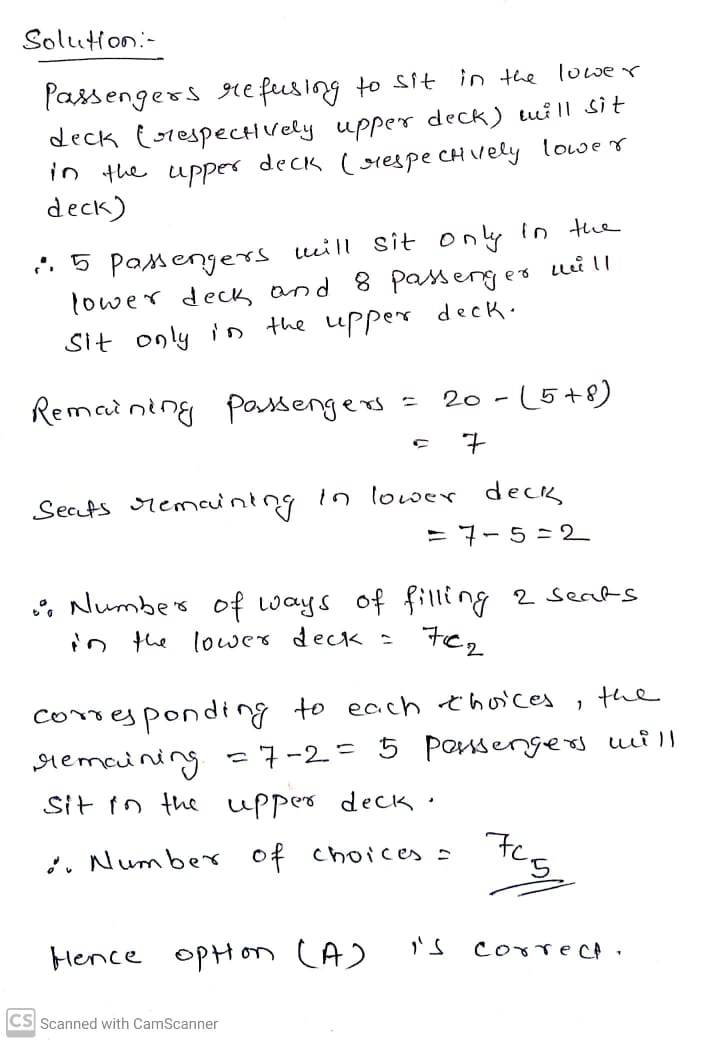 Solution:-
Passengers refusing to sit in the lower
deck (respectively upper deck) will sit
in the upper deck (respectively lower
deck)
∴ 5 passengers will sit only in the
lower deck and 8 passenger will
sit only in the upper deck.
Remaining passengers = 20 - (5+8)
= 7
Seats remaining in lower deck
= 7 - 5 = 2
∴ Number of ways of filling 2 seats
in the lower deck = 7c2
corresponding to each choices, the
remaining = 7-2 = 5 passengers will
sit in the upper deck.
∴ Number of choices = 7c5
Hence option (A) is correct.
CS Scanned with CamScanner